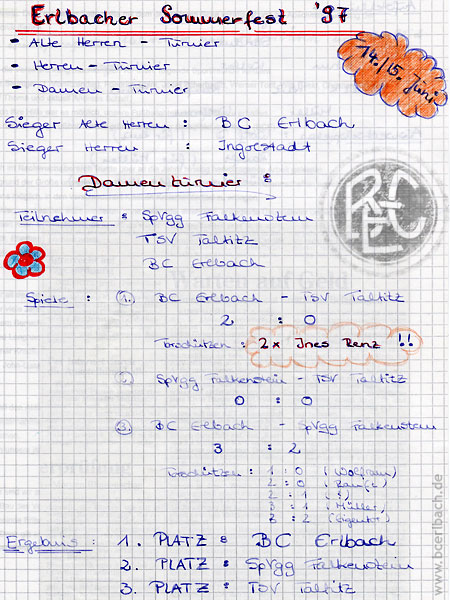 Erlbacher Sommerfest '97
- Alte Herren - Turnier
- Herren - Turnier
- Damen - Turnier
14./15. Juni
Sieger Alte Herren : BC Erlbach
Sieger Herren : Ingolstadt
Damenturnier :
Teilnehmer : SpVgg Falkenstein
TSV Taltitz
BC Erlbach
Spiele : 1. BC Erlbach - TSV Taltitz
2 : 0
Torschützen : 2x Ines Renz !!
SpVgg Falkenstein - TSV Taltitz
0 : 0
3. BC Erlbach - SpVgg Falkenstein
3 : 2
Torschützen : 1 : 0 (Wolfram)
2 : 0
2 : 1 (?)
3 : 1 (Müller)
3 : 2 (Eigentor)
Ergebnis : 1. PLATZ : BC Erlbach
2. PLATZ : SpVgg Falkenstein
3. PLATZ : TSV Taltitz
www.bcerlbach.de